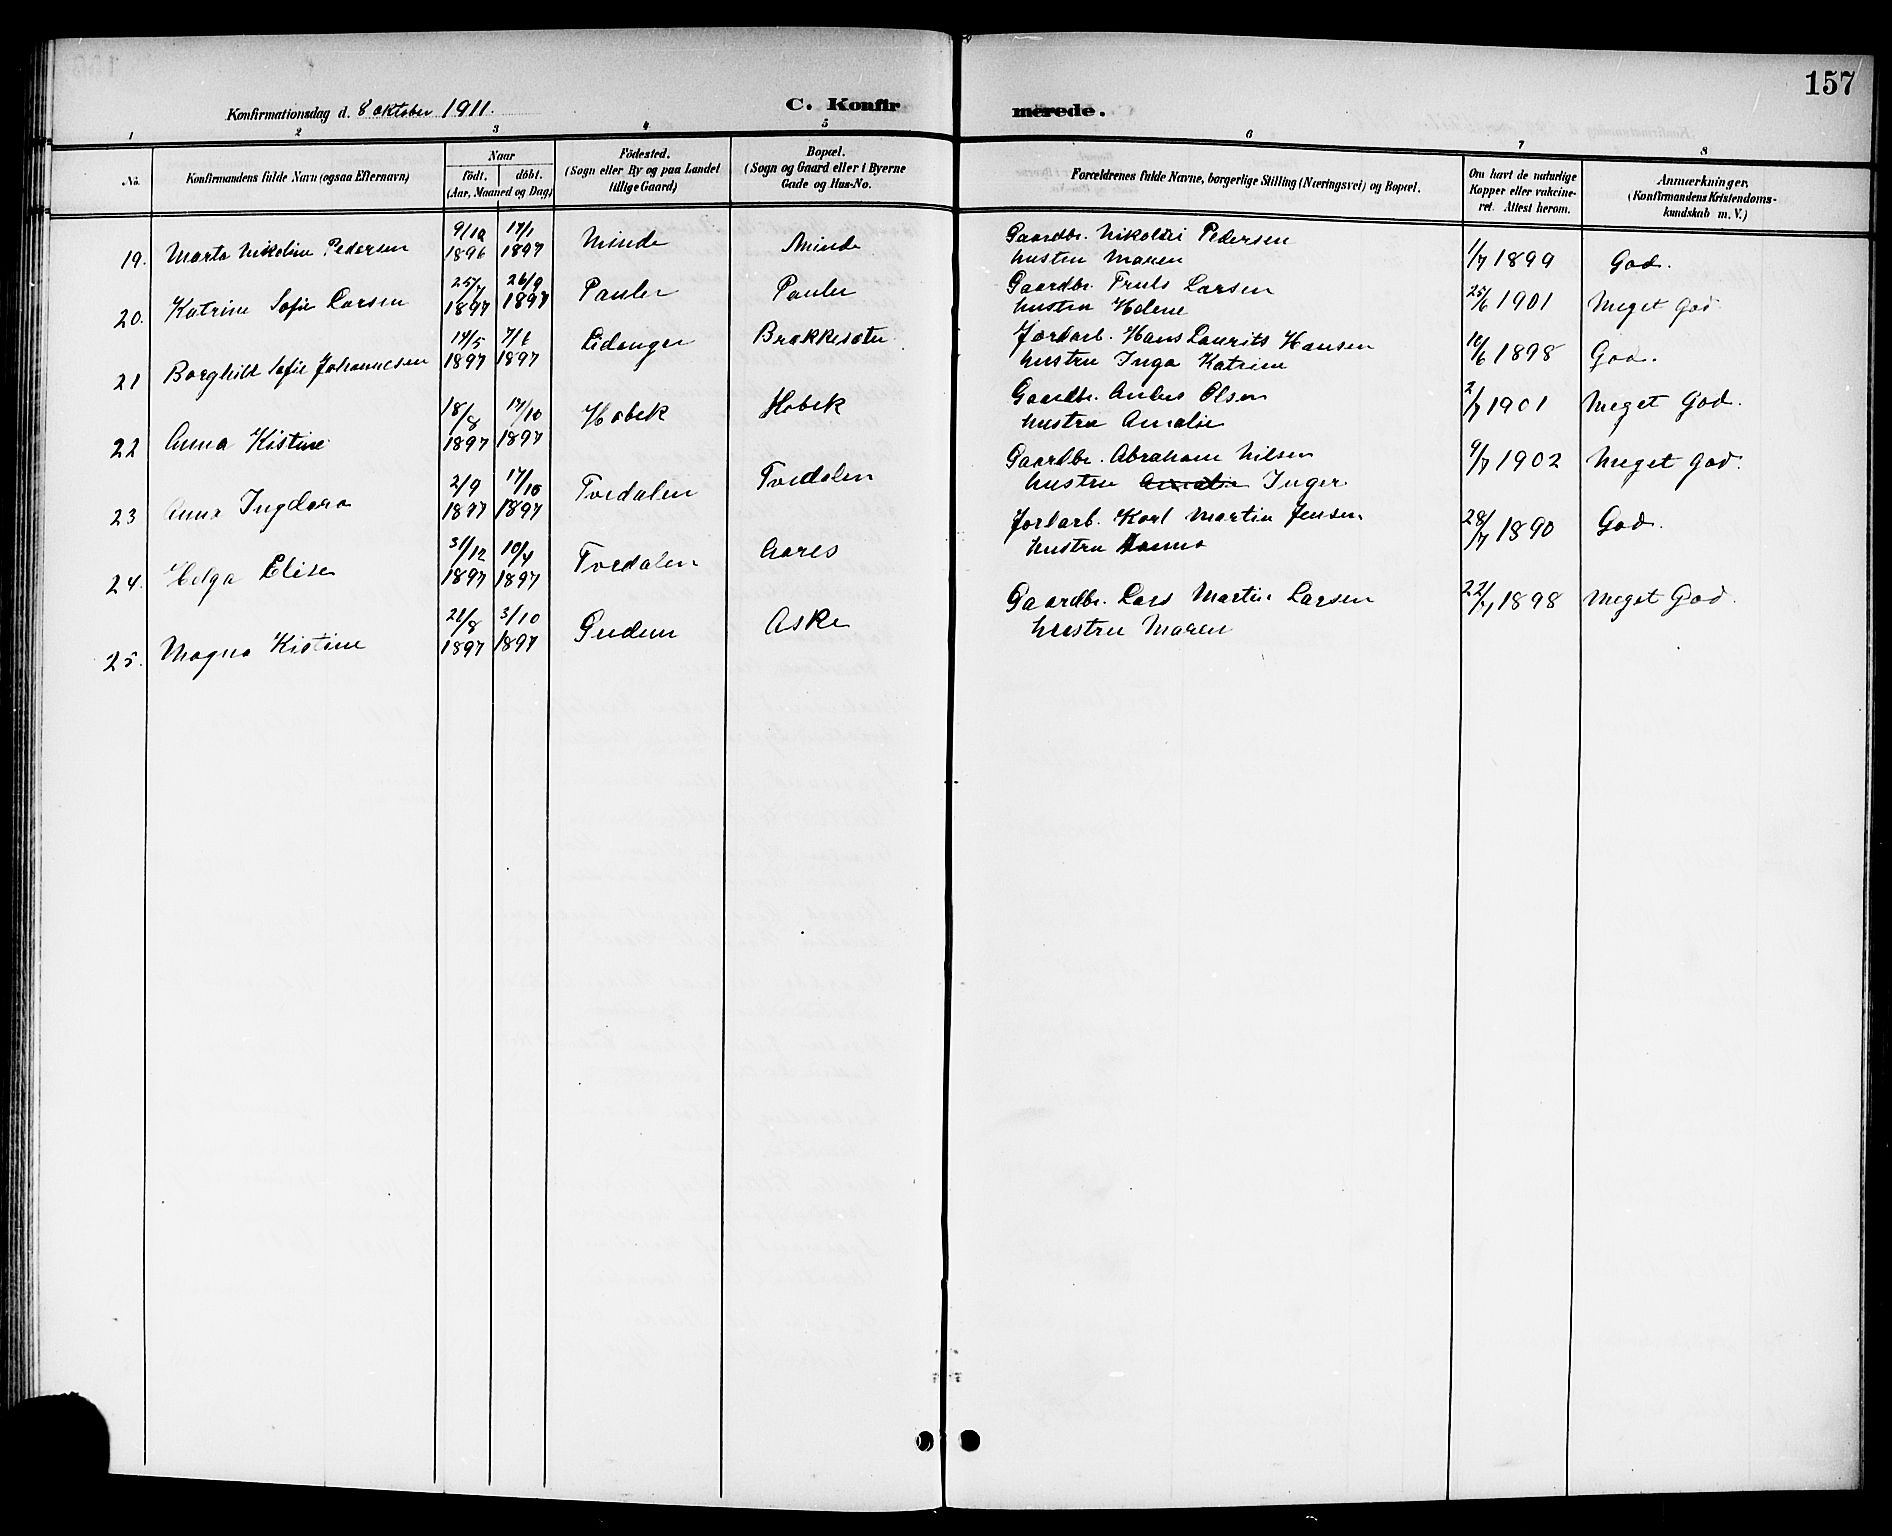 157
Konfirmationsdag d. 8 oktober 1911.
C. Konfir merede.
1 2 3 4 5 6 7 8
No. Konfirmandens fulde Navn (ogsaa Efternavn) Naar födt. döbt. (Aar, Maaned og Dag) Födested. (Sogn eller By og paa Landet tillige Gaard) Bopæl. (Sogn og Gaard eller i Byerne Gade og Hus-No. Forældrenes fulde Navne, borgerlige Stilling (Næringsvei) og Bopæl. Om havt de naturlige Kopper eller vakcineret. Attest herom. Anmærkninger. (Konfirmandens Kristendomskundskab m. V.)
19. Marta Nikoline Pedersen 9/12 1896 17/1 1897 Minde Minde Gaardbr. Nikolai Pedersen hustru Maren 1/7 1899 God.
20. Katrine Sofie Larsen 25/7 1897 26/9 1897 Pauler Pauler Gaardbr. Truls Larsen hustru Helene 25/6 1901 Meget god
21 Borghild Sofie Johannesen 14/5 1897 7/6 1897 Eidanger Brakkesætu Jordarb. Hans Laurits Hansen hustru Inga Katrine 10/6 1898 God.
22 Anna Kistine 18/8 1897 17/10 1897 Hobek Hobek Gaardbr. Anders Olsen hustru Amalie 2/7 1901 Meget God.
23 Anna Ingdora 2/9 1897 17/10 1897 Tvedalen Tvedalen Gaardbr. Abraham Nilsen hustru Amalie Inger 9/7 1902 Meget god.
24. Helga Elise 31/12 1897 10/4 1897 Tvedalen Aares Jordarb. Karl Martin Jensen hustru Hanna 28/7 1890 God.
25. Magna Kistine 21/8 1897 3/10 1897 Gudem Aske Gaardbr. Lars Martin Larsen hustru Maren 22/7 1898 Meget God.